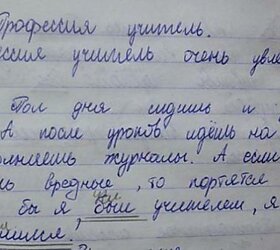 Профессия учитель.
ессия учитель очень увле
Пол дня сидишь и
А после уроков идёшь на
олняешь журналы. А если
ь вредные, то портятся
бы я был учителем, я